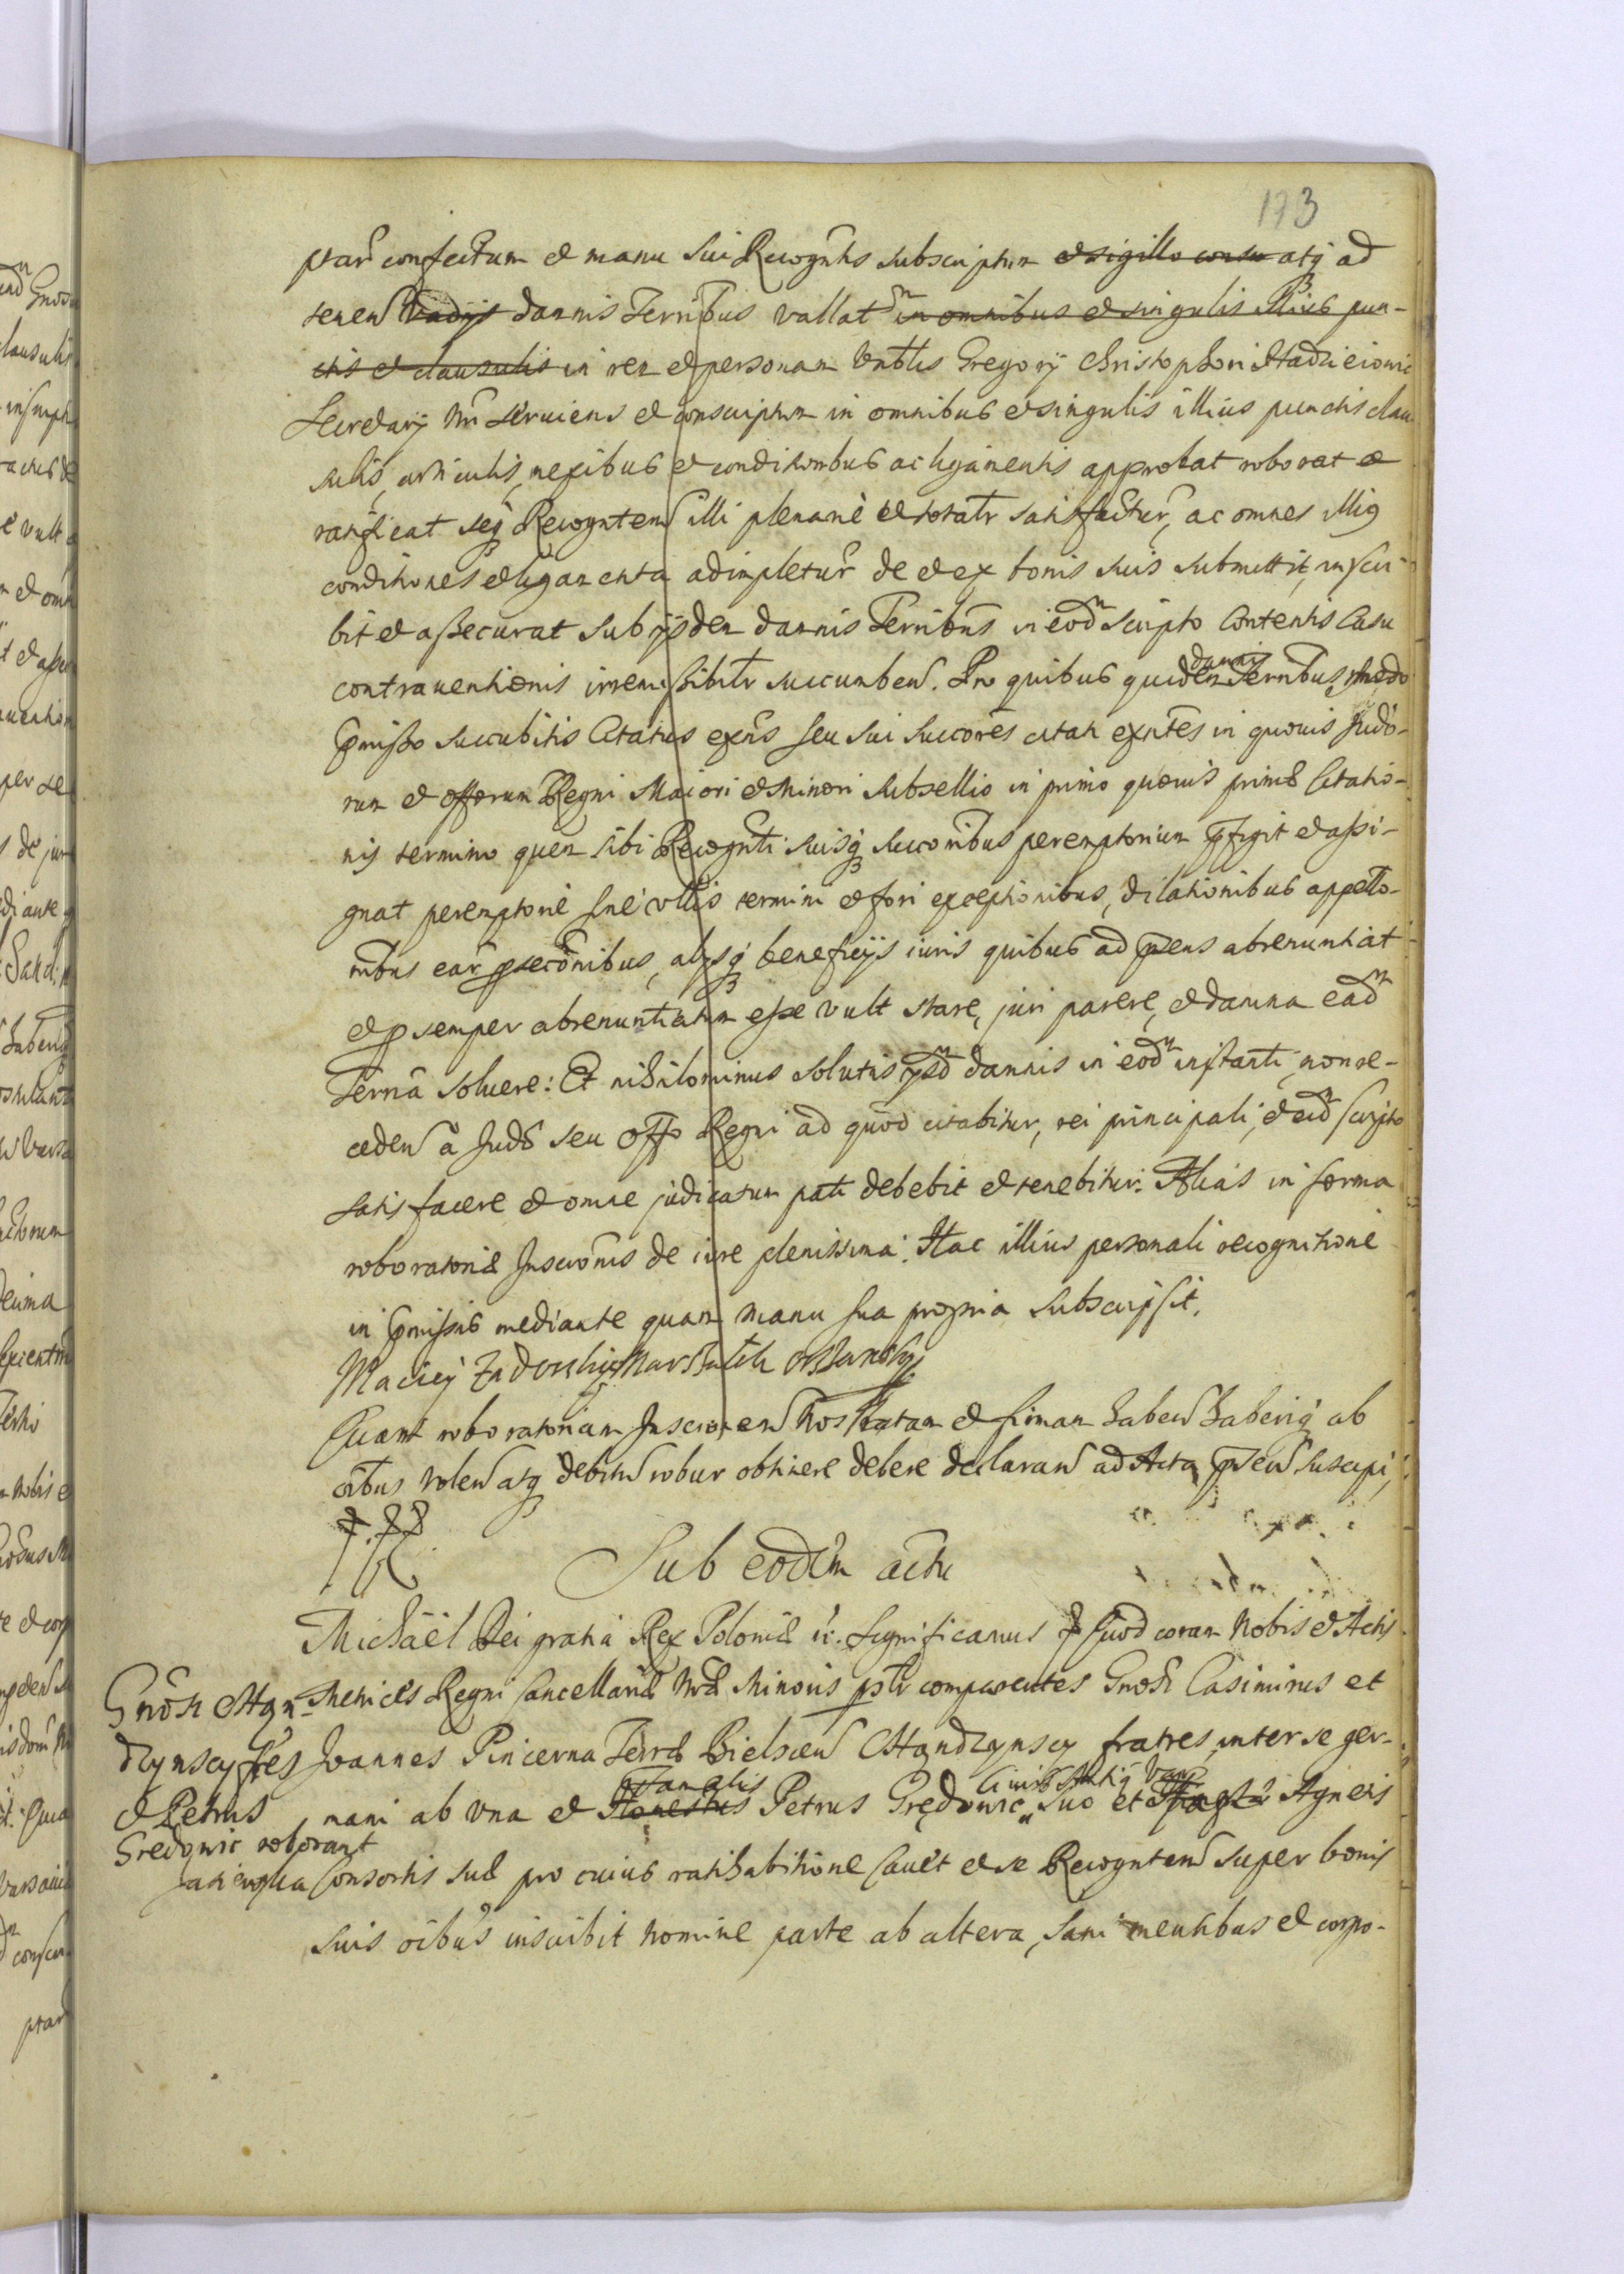 173
ptar confectum et manu sui Recogntis subscriptum et sigillo consu atq ad
tenen Vadijs damnis Terribus vallat in omnibus et singulis illius pun-
ctis et clausulis in rem et personam Gregorij Christophori
Secretarij Nri seruiens et conscriptum in omnibus et singulis illius punctis clau
sulis, articulis, nexibus et conditionibus ac ligamentis approbat roborat et
ratificat seq Recognten illi plenarie et totatr satisfactur, ac omnes illiq
conditiones et ligamenta adimpletur de et ex bonis suis submittit, inscri
bit et assecurat sub ijsdem damnis Terribus in eod scripto contentis casu
contrauentionis irremissibiliter succumben. Pro quibus quidem damnis Terribus modo
pmisso succubitis citatus exns seu sui succores citati exntes in quouis Judo-
rum et offorum Regni Maiori et Minori subsellio in primo quouis primae citatio-
nis termino quem sibi Recognti suisq succoribus peremptorium pfigit et assi-
gnat peremptorie sine ullis termini et fori exceptionibus, dilationibus appello-
nibus ear psecõnibus, alysq beneficijs iuris quibus ad pens abrenuntiat
et p semper abrenuntiatum esse vult stare, juri parere, et damna ead
Terna soluere: Et nihilominus solutis ysd damnis in eod instanti non re-
ceden a Judo seu offo Regni ad quod citabitur, rei principali, et eid scripto
satisfacere et omne judicatum pati debebit et tenebitur. Alias in forma
roboratoriae Inscronis de iure plenissima. Hac illius personali recognitione
in pmissis mediante quam manu sua propria subscripsit.
Maciej Marszałek
Quam roboratoriam Inscronem Nos Ratam et firmam haben haberiq ab
oibus volen atq debitu robur obtinere debere declaran ad Acta psen suscepi;
Sub eodem actu
Michaël Dei gratia Rex Poloniae &c. Significamus Quod coram Nobis et Actis
Metrices Regni Cancellariae Nrae Minoris psltr comparentes Gnosi Casimirus et
Joannes Pincerna Terrae Bielscen fratres inter se ger-
mani ab una et Honestus Petrus Grędowic suo et Agnetis
Consortis suae pro cuius ratihabitione Cauet et se Recognten super bonis
suis oibus inscribit nomine parte ab altera, sani mentibus et corpo-
Gnosi
et Petrus
Gredowic roborant